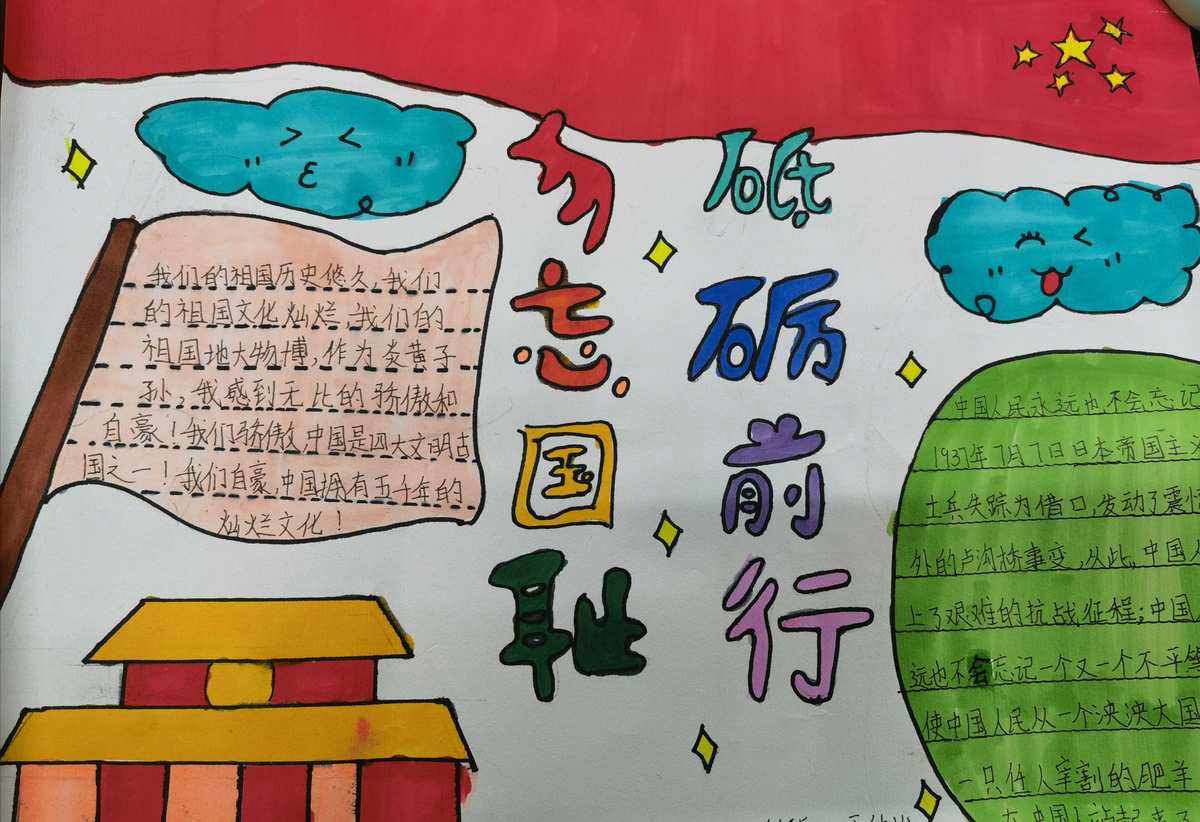 勿忘国耻
砥砺前行
我们的祖国历史悠久,我们
的祖国文化灿烂,我们的
祖国地大物博,作为炎黄子
孙,我感到无比的骄傲和
自豪!我们骄傲,中国是四大文明古
国之一!我们自豪,中国拥有五千年的
灿烂文化!
中国人民永远也不会忘记
1937年7月7日日本帝国主义
士兵失踪为借口,发动了震
外的卢沟桥事变,从此,中国
上了艰难的抗战征程;中国
远也不会忘记一个又一个不平等
使中国人民从一个泱泱大国
一只任人宰割的肥羊